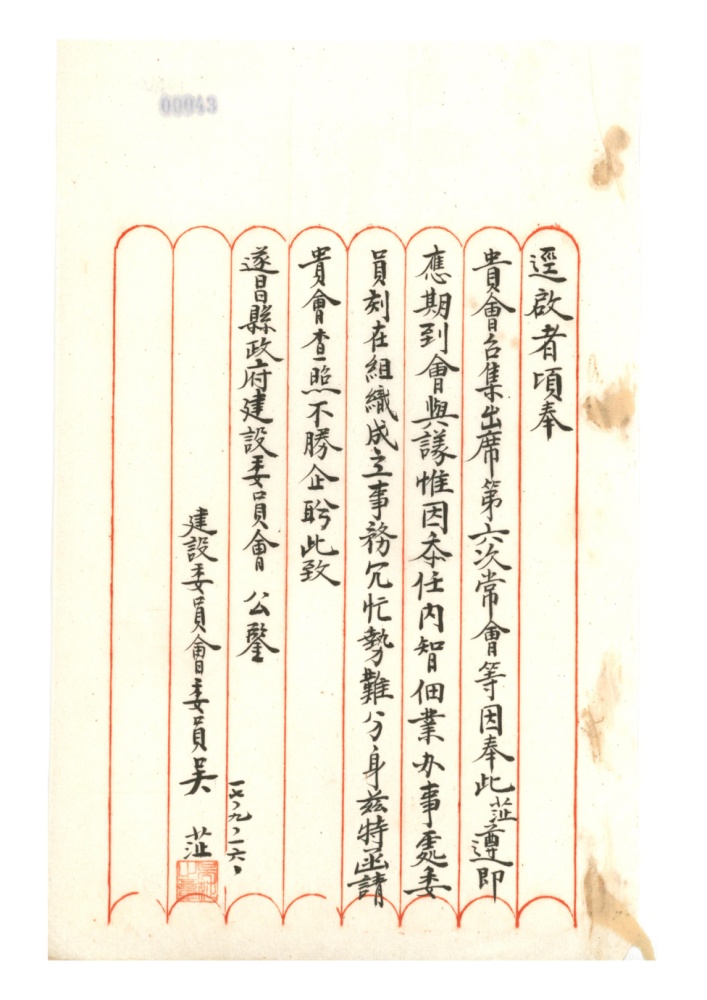 00043
逕啟者頃奉
貴會召集出席第六次常會等因奉此茳遵即
應期到會與議惟因忝任内智佃業办事處委
員刻在組織成立事務冗忙勢難分身茲特函請
貴會查照不勝企盼此致
遂昌縣政府建設委員會 公鑒
建設委員會委員吳 茳
一七、九、一六、